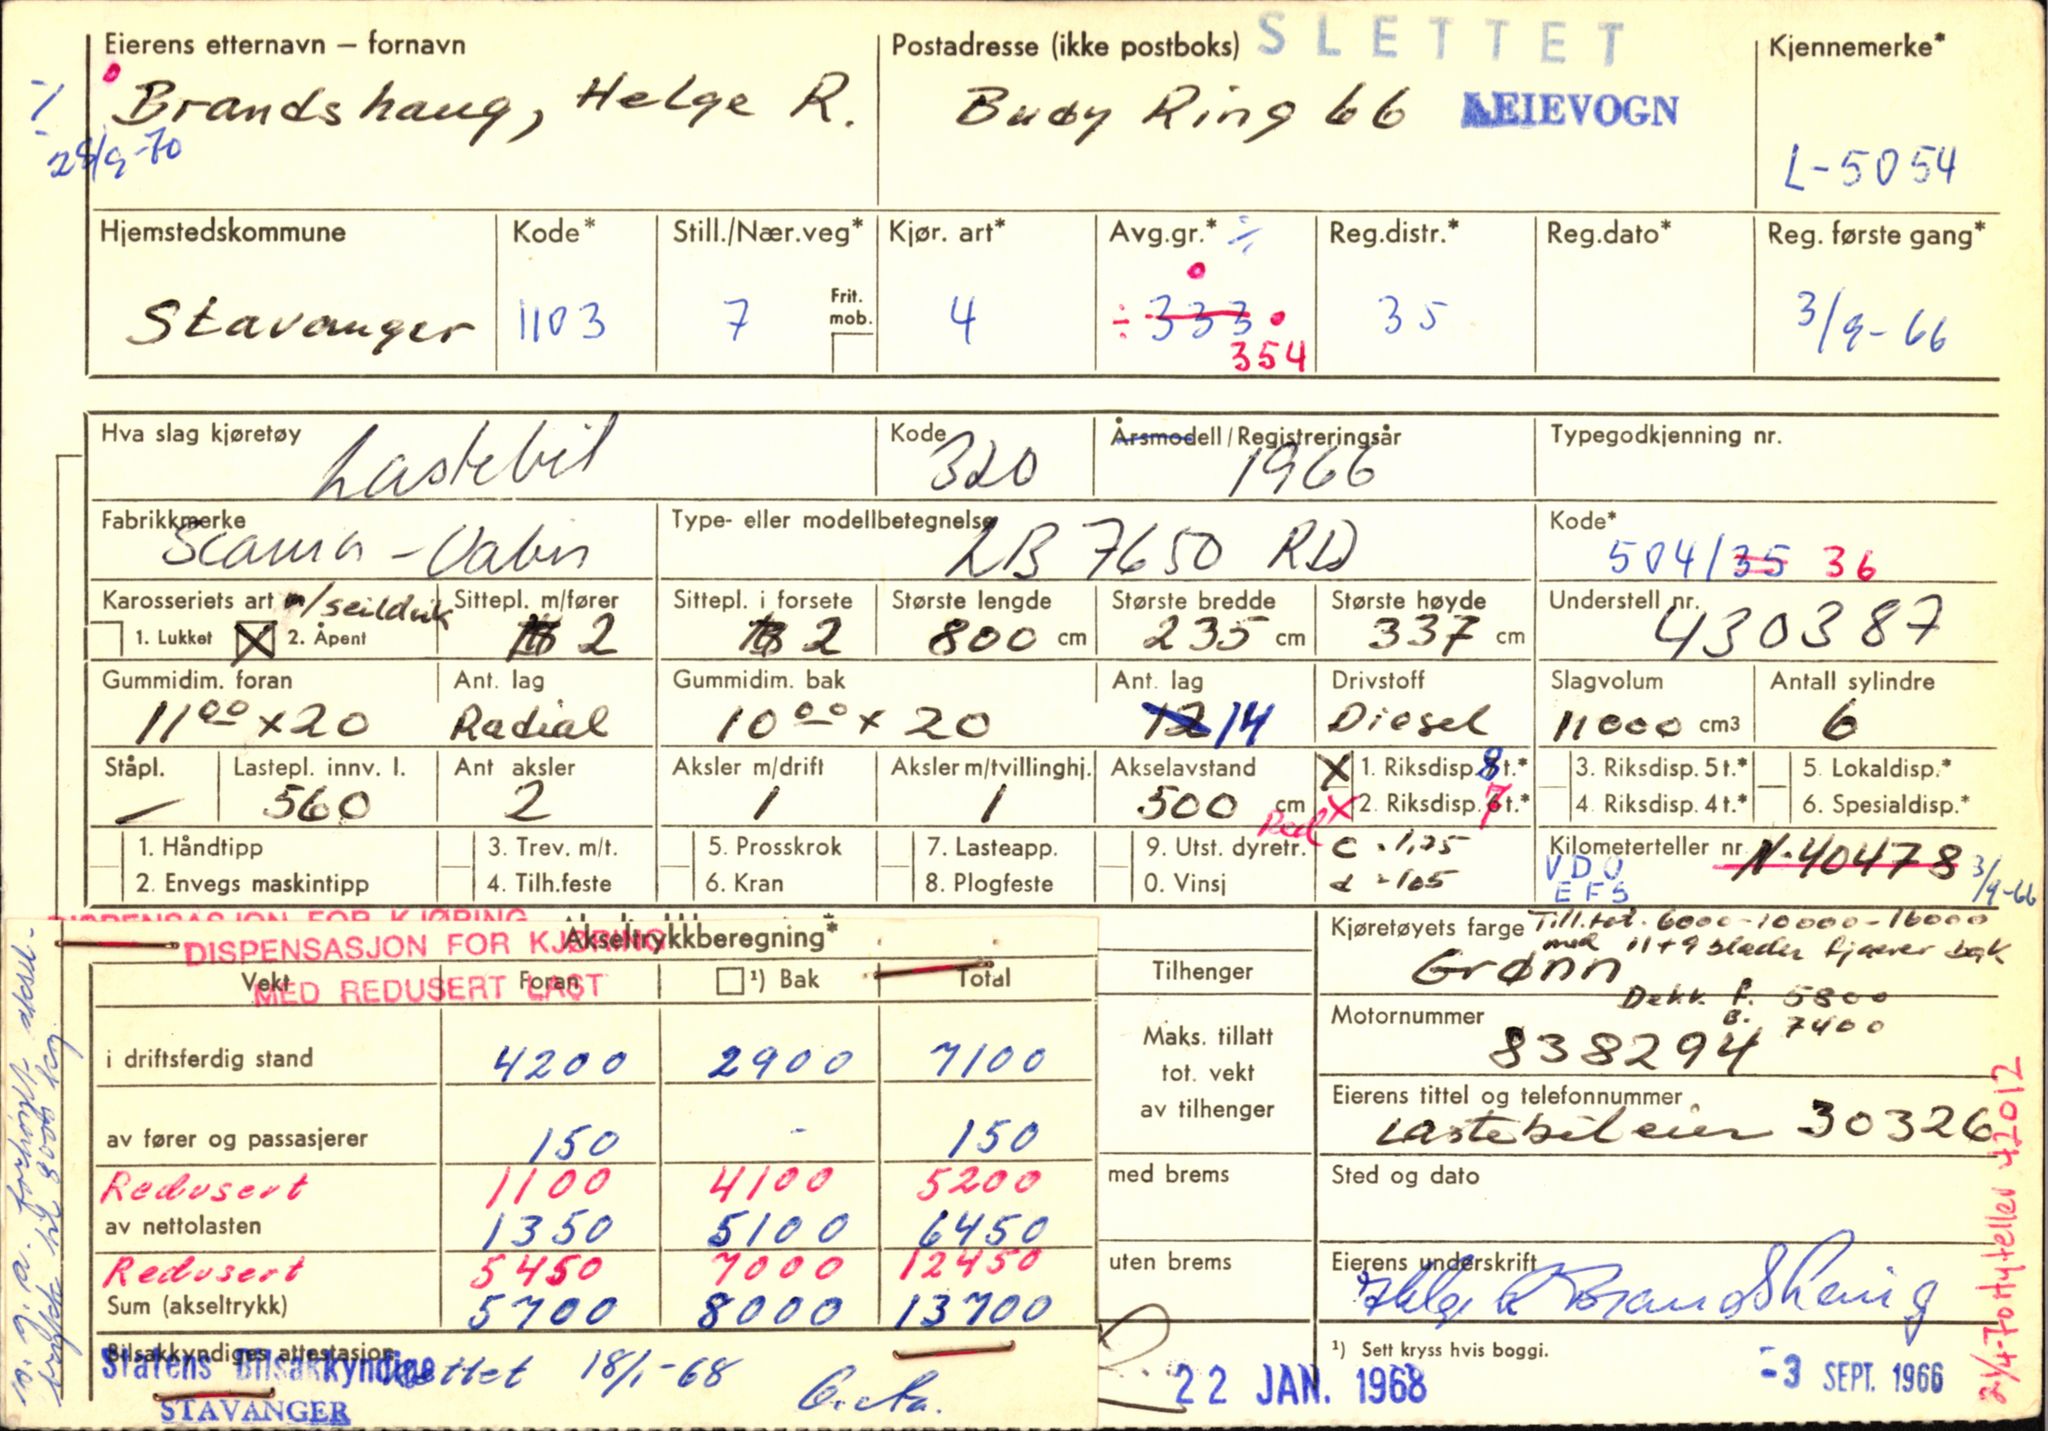 SLETTET
Eierens etternavn – fornavn
Postadresse (ikke postboks)
Kjennemerke*
Brandshaug, Helge R.
Buøy Ring 66
LEIEVOGN
28/9-70
L-5054
Hjemstedskommune
Kode*
Still./Nær.veg*
Kjør. art*
Avg.gr.* ÷
Reg.distr.*
Reg.dato*
Reg. første gang*
Stavanger
1103
7
Frit. mob.
4
÷ 333
354
35
3/9-66
Hva slag kjøretøy
Lastebil
Kode
320
Årsmodell/Registreringsår
1966
Typegodkjenning nr.
Fabrikkmerke
Scania-Vabis
Type- eller modellbetegnelse
LB 7650 RD
Kode*
504/35 36
Karosseriets art m/seilduk
1. Lukket X 2. Åpent
Sittepl. m/fører
2
Sittepl. i forsete
2
Største lengde
800 cm
Største bredde
235 cm
Største høyde
337 cm
Understell nr.
430387
Gummidim. foran
11⁰⁰ x 20
Ant. lag
Radial
Gummidim. bak
10⁰⁰ x 20
Ant. lag
12 14
Drivstoff
Diesel
Slagvolum
11000 cm3
Antall sylindre
6
Ståpl.
–
Lastepl. innv. l.
560
Ant aksler
2
Aksler m/drift
1
Aksler m/tvillinghj.
1
Akselavstand
500 cm
X 1. Riksdisp. 8 t.*
Red X 2. Riksdisp. 7 t.*
3. Riksdisp. 5 t.*
4. Riksdisp. 4 t.*
5. Lokaldisp.*
6. Spesialdisp.*
1. Håndtipp
2. Envegs maskintipp
3. Trev. m/t.
4. Tilh.feste
5. Prosskrok
6. Kran
7. Lasteapp.
8. Plogfeste
9. Utst. dyretr.
0. Vinsj
c - 1,25
d - 105
Kilometerteller nr.
N-40478
VDO
EFS
3/9-66
DISPENSASJON FOR KJØRING
DISPENSASJON FOR KJØRING
MED REDUSERT LAST
Akseltrykkberegning*
Vekt
Foran
¹) Bak
Total
i driftsferdig stand
4200 2900 7100
av fører og passasjerer
150 - 150
Redusert 1100 4100 5200
av nettolasten
1350 5100 6450
Redusert 5450 7000 12450
Sum (akseltrykk)
5700 8000 13700
Tilhenger
Maks. tillatt
tot. vekt
av tilhenger
med brems
uten brems
Kjøretøyets farge
Till.tot. 6000-10000-16000
med 11+9 blader fjærer bak
Grønn
Dekk f. 5800
B. 7400
Motornummer
838294
Eierens tittel og telefonnummer
Lastebileier 30326
Sted og dato
Eierens underskrift
Helge R Brandshaug
¹) Sett kryss hvis boggi.
Bilsakkyndiges attestasjon
Statens Bilsakkyndige
STAVANGER
Rettet 18/1-68
22 JAN. 1968
-3 SEPT. 1966
21/4-70 Hytteller 42012
p. g. a. forhøyet aksel-
trykk til 8000 kg.